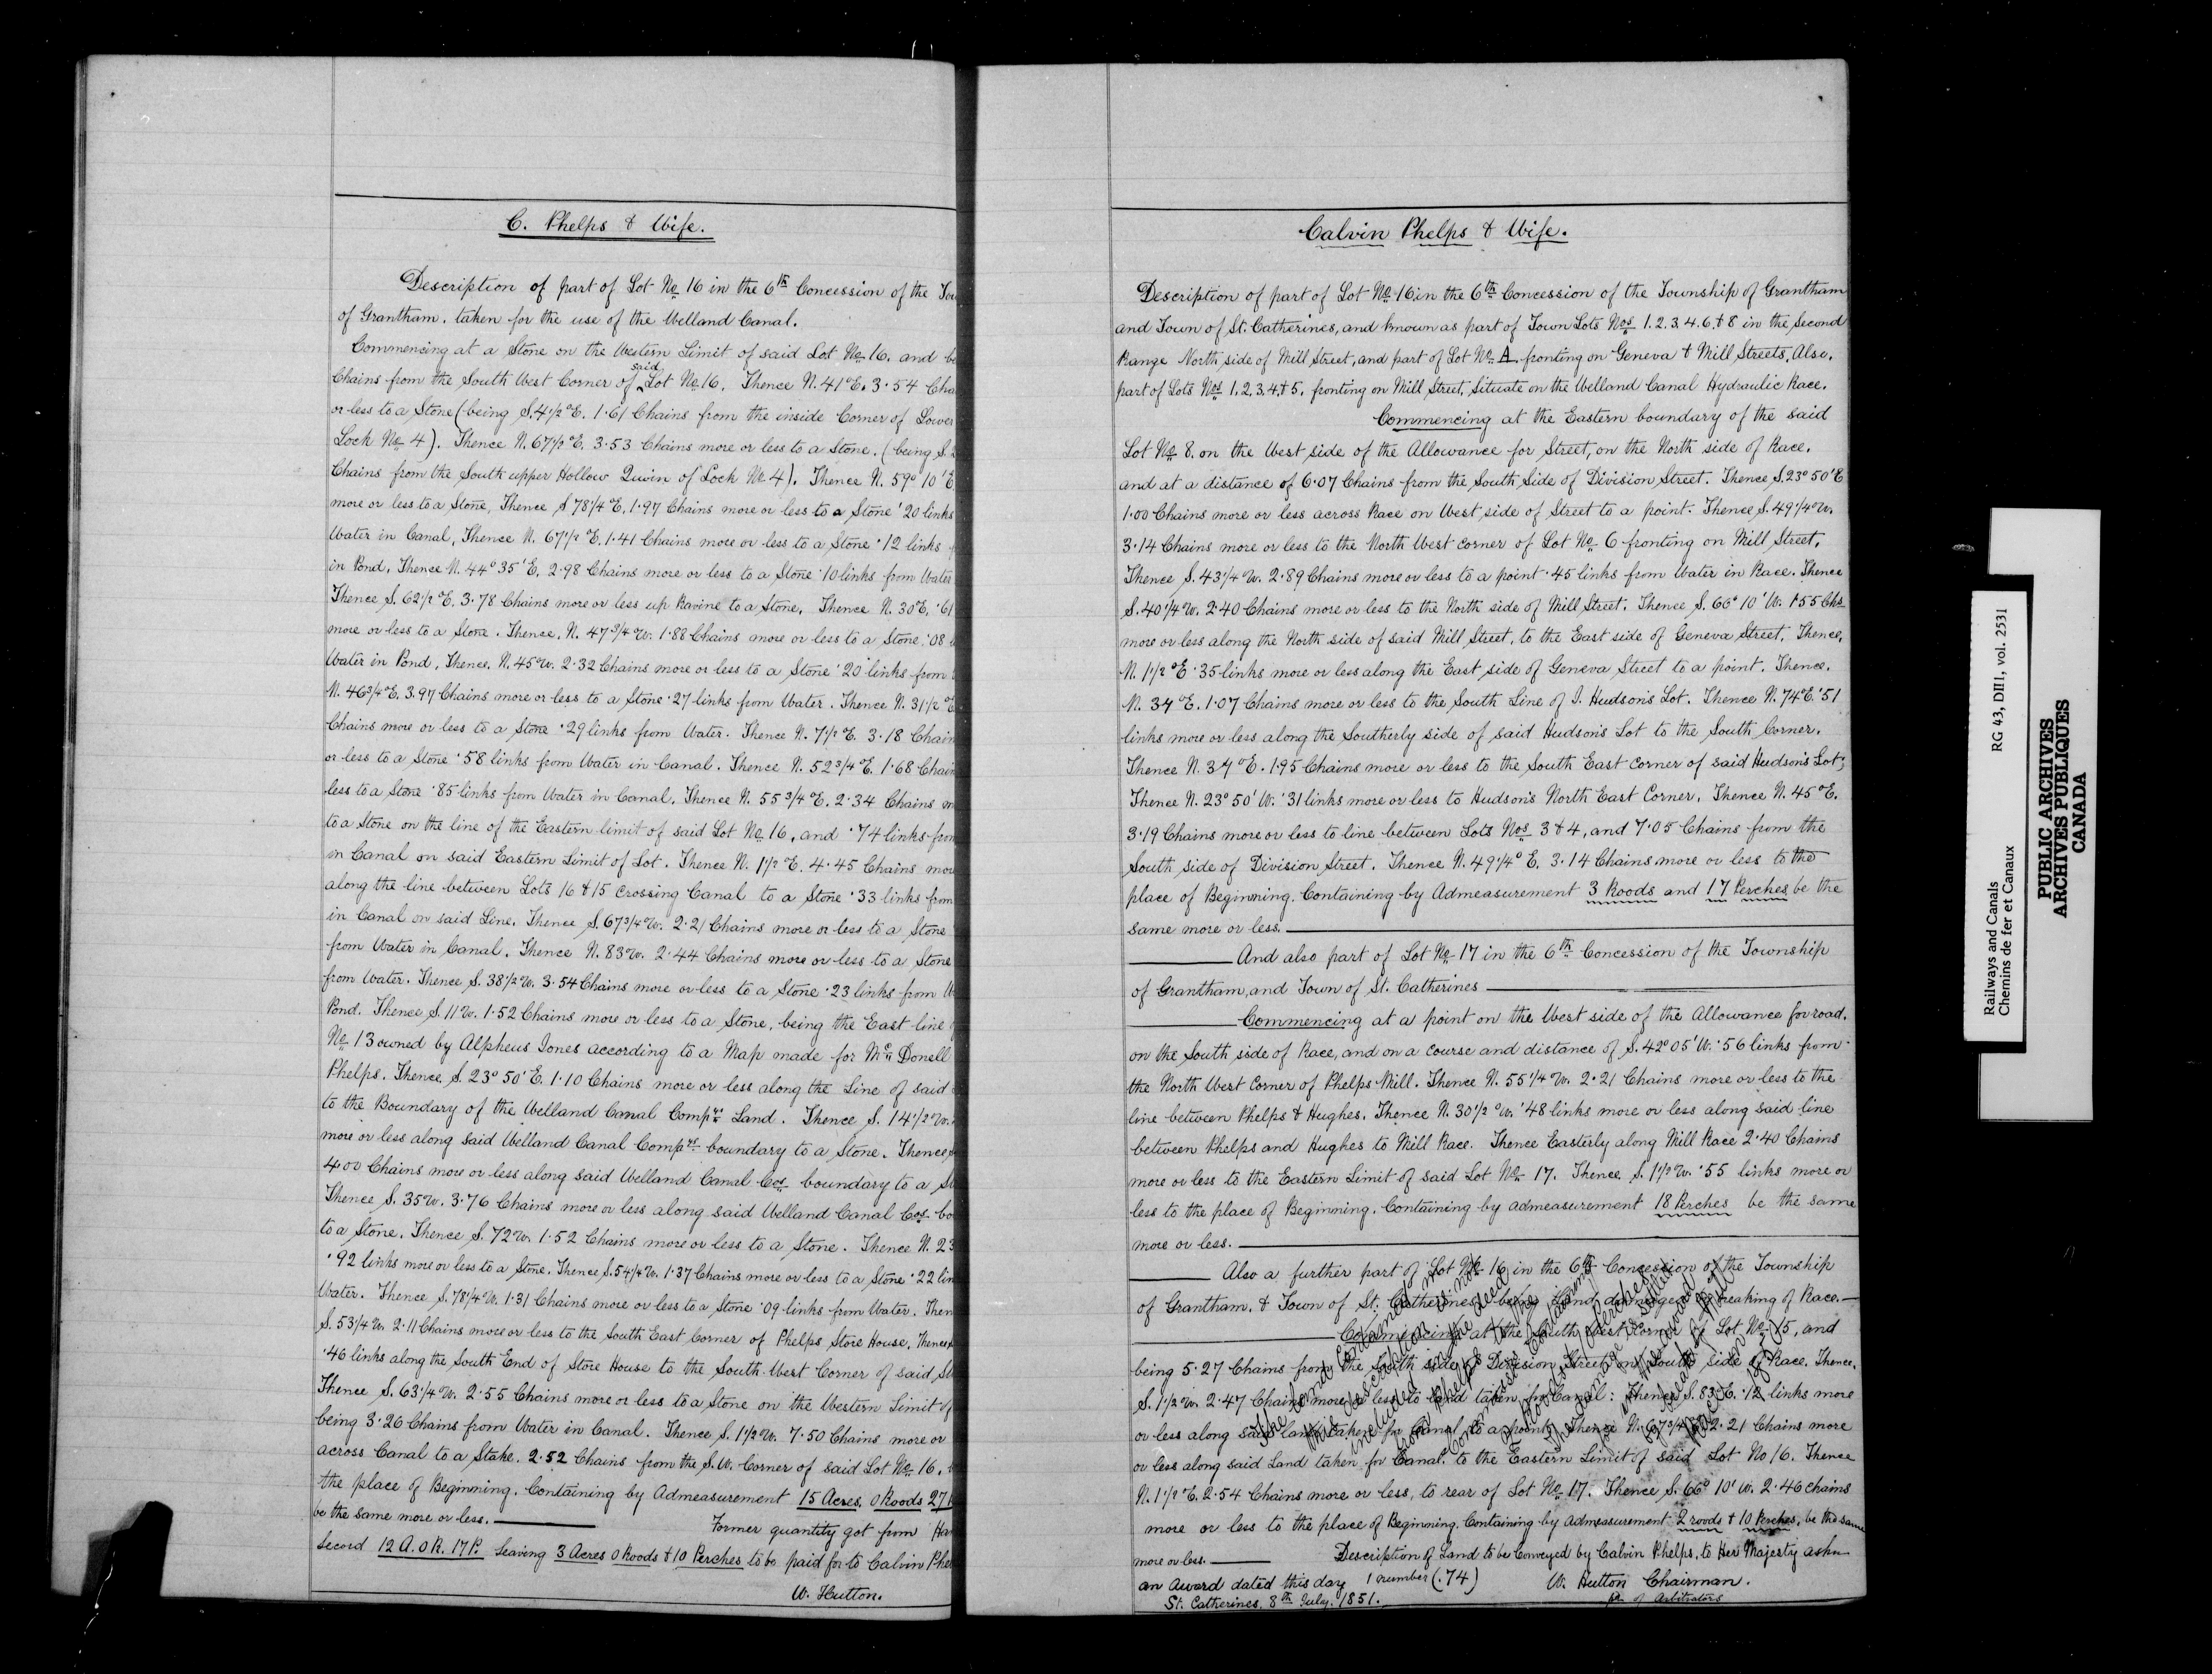 C. Phelps & Wife.
Description of part of Lot No 16 in the 6th Concession of the
of Grantham. taken for the use of the Welland Canal.
Commencing at a Stone on the Western Limit of said Lot No 16. and
Chains from the South West Corner of said Lot No 16. Thence N. 41°E. 3.54
or less to a Stone (being S.4 1/2 °E. 1.61 Chains from the inside Corner of Lower
Lock No 4). Thence N. 67 1/2 °E. 3.53 Chains more or less to a Stone. (being S.
Chains from the South upper Hollow Quoin of Lock No 4). Thence N. 59° 10' E
more or less to a Stone, Thence S 78 1/4 °E. 1.97 Chains more or less to a Stone .20 links
Water in Canal, Thence N. 67 1/2 °E. 1.41 Chains more or less to a Stone .12 links
in Pond, Thence N. 44° 35' E. 2.98 Chains more or less to a Stone .10 links from Water
Thence S. 62 1/2 °E. 3.78 Chains more or less up Ravine to a Stone, Thence N. 30°E. .61
more or less to a Stone. Thence, N. 47 3/4 °W. 1.88 Chains more or less to a Stone .08
Water in Pond, Thence, N. 45°W. 2.32 Chains more or less to a Stone .20 links from
N. 46 3/4 °E. 3.97 Chains more or less to a Stone .27 links from Water. Thence N. 31 1/2 °E
Chains more or less to a Stone .29 links from Water. Thence N. 7 1/2 °E. 3.18 Chain
or less to a Stone .58 links from Water in Canal. Thence N. 52 3/4 °E. 1.68 Chain
less to a Stone .85 links from Water in Canal. Thence N. 55 3/4 °E. 2.34 Chains
to a Stone on the line of the Eastern limit of said Lot No 16, and .74 links from
in Canal on said Eastern Limit of Lot. Thence N. 1 1/2 °E. 4.45 Chains
along the line between Lots 16 & 15 crossing Canal to a Stone .33 links from
in Canal on said Line. Thence S. 67 3/4 °W. 2.21 Chains more or less to a Stone
from Water in Canal. Thence N. 83°W. 2.44 Chains more or less to a Stone
from Water. Thence S. 38 1/2 °W. 3.54 Chains more or less to a Stone .23 links from
Pond. Thence S. 11°W. 1.52 Chains more or less to a Stone, being the East line
No 13 owned by Alpheus Jones according to a Map made for Mc Donell
Phelps. Thence S. 23° 50' E. 1.10 Chains more or less along the Line of said
to the Boundary of the Welland Canal Compys Land. Thence S. 14 1/2 °W.
more or less along said Welland Canal Compys boundary to a Stone. Thence
4.00 Chains more or less along said Welland Canal Cos boundary to a
Thence S. 35°W. 3.76 Chains more or less along said Welland Canal Cos
to a Stone. Thence S. 72°W. 1.52 Chains more or less to a Stone. Thence N. 23
.92 links more or less to a Stone. Thence S. 54 1/4 °W. 1.37 Chains more or less to a Stone .22
Water. Thence S. 78 1/4 °W. 1.31 Chains more or less to a Stone .09 links from Water.
S. 53 1/4 °W. 2.11 Chains more or less to the South East Corner of Phelps Store House, Thence
.46 links along the South End of Store House to the South West Corner of said
Thence S. 63 1/4 °W. 2.55 Chains more or less to a Stone on the Western Limit of
being 3.26 Chains from Water in Canal. Thence S. 1 1/2 °W. 7.50 Chains more or
across Canal to a Stake. 2.52 Chains from the S.W. Corner of said Lot No 16.
the place of Beginning. Containing by Admeasurement 15 Acres. 0 Roods 27
be the same more or less. Former quantity got from
Secord 12 A. 0 R. 17 P. leaving 3 Acres 0 Roods & 10 Perches to be paid for to Calvin
W. Hutton.
Calvin Phelps & Wife.
Description of part of Lot No 16 in the 6th Concession of the Township of Grantham
and Town of St. Catherines, and known as part of Town Lots Nos 1. 2. 3. 4. 6. & 8 in the Second
Range North side of Mill Street, and part of Lot No A fronting on Geneva & Mill Streets, Also,
part of Lots Nos 1, 2, 3, 4, & 5, fronting on Mill Street, Situate on the Welland Canal Hydraulic Race.
Commencing at the Eastern boundary of the said
Lot No 8. on the West side of the Allowance for Street, on the North side of Race.
and at a distance of 6.07 Chains from the South Side of Division Street. Thence S. 23° 50' E
1.00 Chains more or less across Race on West side of Street to a point. Thence S. 49 1/4 °W.
3.14 Chains more or less to the North West corner of Lot No 6 fronting on Mill Street,
Thence S. 43 1/4 W. 2.89 Chains more or less to a point .45 links from Water in Race. Thence
S. 40 1/4 W. 2.40 Chains more or less to the North side of Mill Street. Thence S. 66° 10' W. 1.55 Chs
more or less along the North side of said Mill Street, to the East side of Geneva Street, Thence,
N. 1 1/2 °E .35 links more or less along the East side of Geneva Street to a point. Thence.
N. 34 °E. 1.07 Chains more or less to the South Line of J. Hudson's Lot. Thence N. 74°E. .51
links more or less along the Southerly side of said Hudson's Lot to the South Corner.
Thence N. 34 °E. 1.95 Chains more or less to the South East corner of said Hudson's Lot;
Thence N. 23° 50' W. .31 links more or less to Hudson's North East Corner, Thence N. 45°E.
3.19 Chains more or less to line between Lots Nos 3 & 4, and 7.05 Chains from the
South side of Division Street. Thence N. 49 1/4 ° E. 3.14 Chains more or less to the
place of Beginning. Containing by Admeasurement 3 Roods and 17 Perches be the
same more or less.
And also part of Lot No 17 in the 6th Concession of the Township
of Grantham, and Town of St. Catherines
Commencing at a point on the West side of the Allowance for road.
on the South side of Race, and on a course and distance of S. 42° 05' W. .56 links from
the North West Corner of Phelps Mill. Thence N. 55 1/4 W. 2.21 Chains more or less to the
line between Phelps & Hughes, Thence N. 30 1/2 °W. .48 links more or less along said line
between Phelps and Hughes to Mill Race. Thence Easterly along Mill Race 2.40 Chains
more or less to the Eastern Limit of said Lot No 17. Thence S. 1 1/2 W. .55 links more or
less to the place of Beginning. Containing by admeasurement 18 Perches be the same
more or less.
Also a further part of Lot No 16 in the 6th Concession of the Township
of Grantham, & Town of St. Catherines being Land damaged by breaking of Race.
Commencing at the South West corner of Lot No 15, and
being 5.27 Chains from the South side of Division Street on South side of Race. Thence,
S. 1 1/2 W. 2.47 Chains more or less to land taken for Canal: Thence S. 83°E. .12 links more
or less along said land taken for Canal to a point, Thence N. 67 3/4 °E. 2.21 Chains more
or less along said Land taken for Canal. to the Eastern Limit of said Lot No 16. Thence
N. 1 1/2 °E. 2.54 Chains more or less, to rear of Lot No 17. Thence S. 66° 10' W. 2.46 chains
more or less to the place of Beginning. Containing by Admeasurement 2 roods & 10 Perches, be the same
more or less. Description of Land to be Conveyed by Calvin Phelps, to Her Majesty as
an Award dated this day number (.74) W. Hutton Chairman.
St. Catherines, 8th July, 1851. of Arbitrators
The Land contained in
this description is not
included in the deed
from Phelps to the
containing
2 Roods 10 Perches
the same
in the award
Railways and Canals
Chemins de fer et Canaux
RG 43, DIII, vol. 2531
PUBLIC ARCHIVES
ARCHIVES PUBLIQUES
CANADA